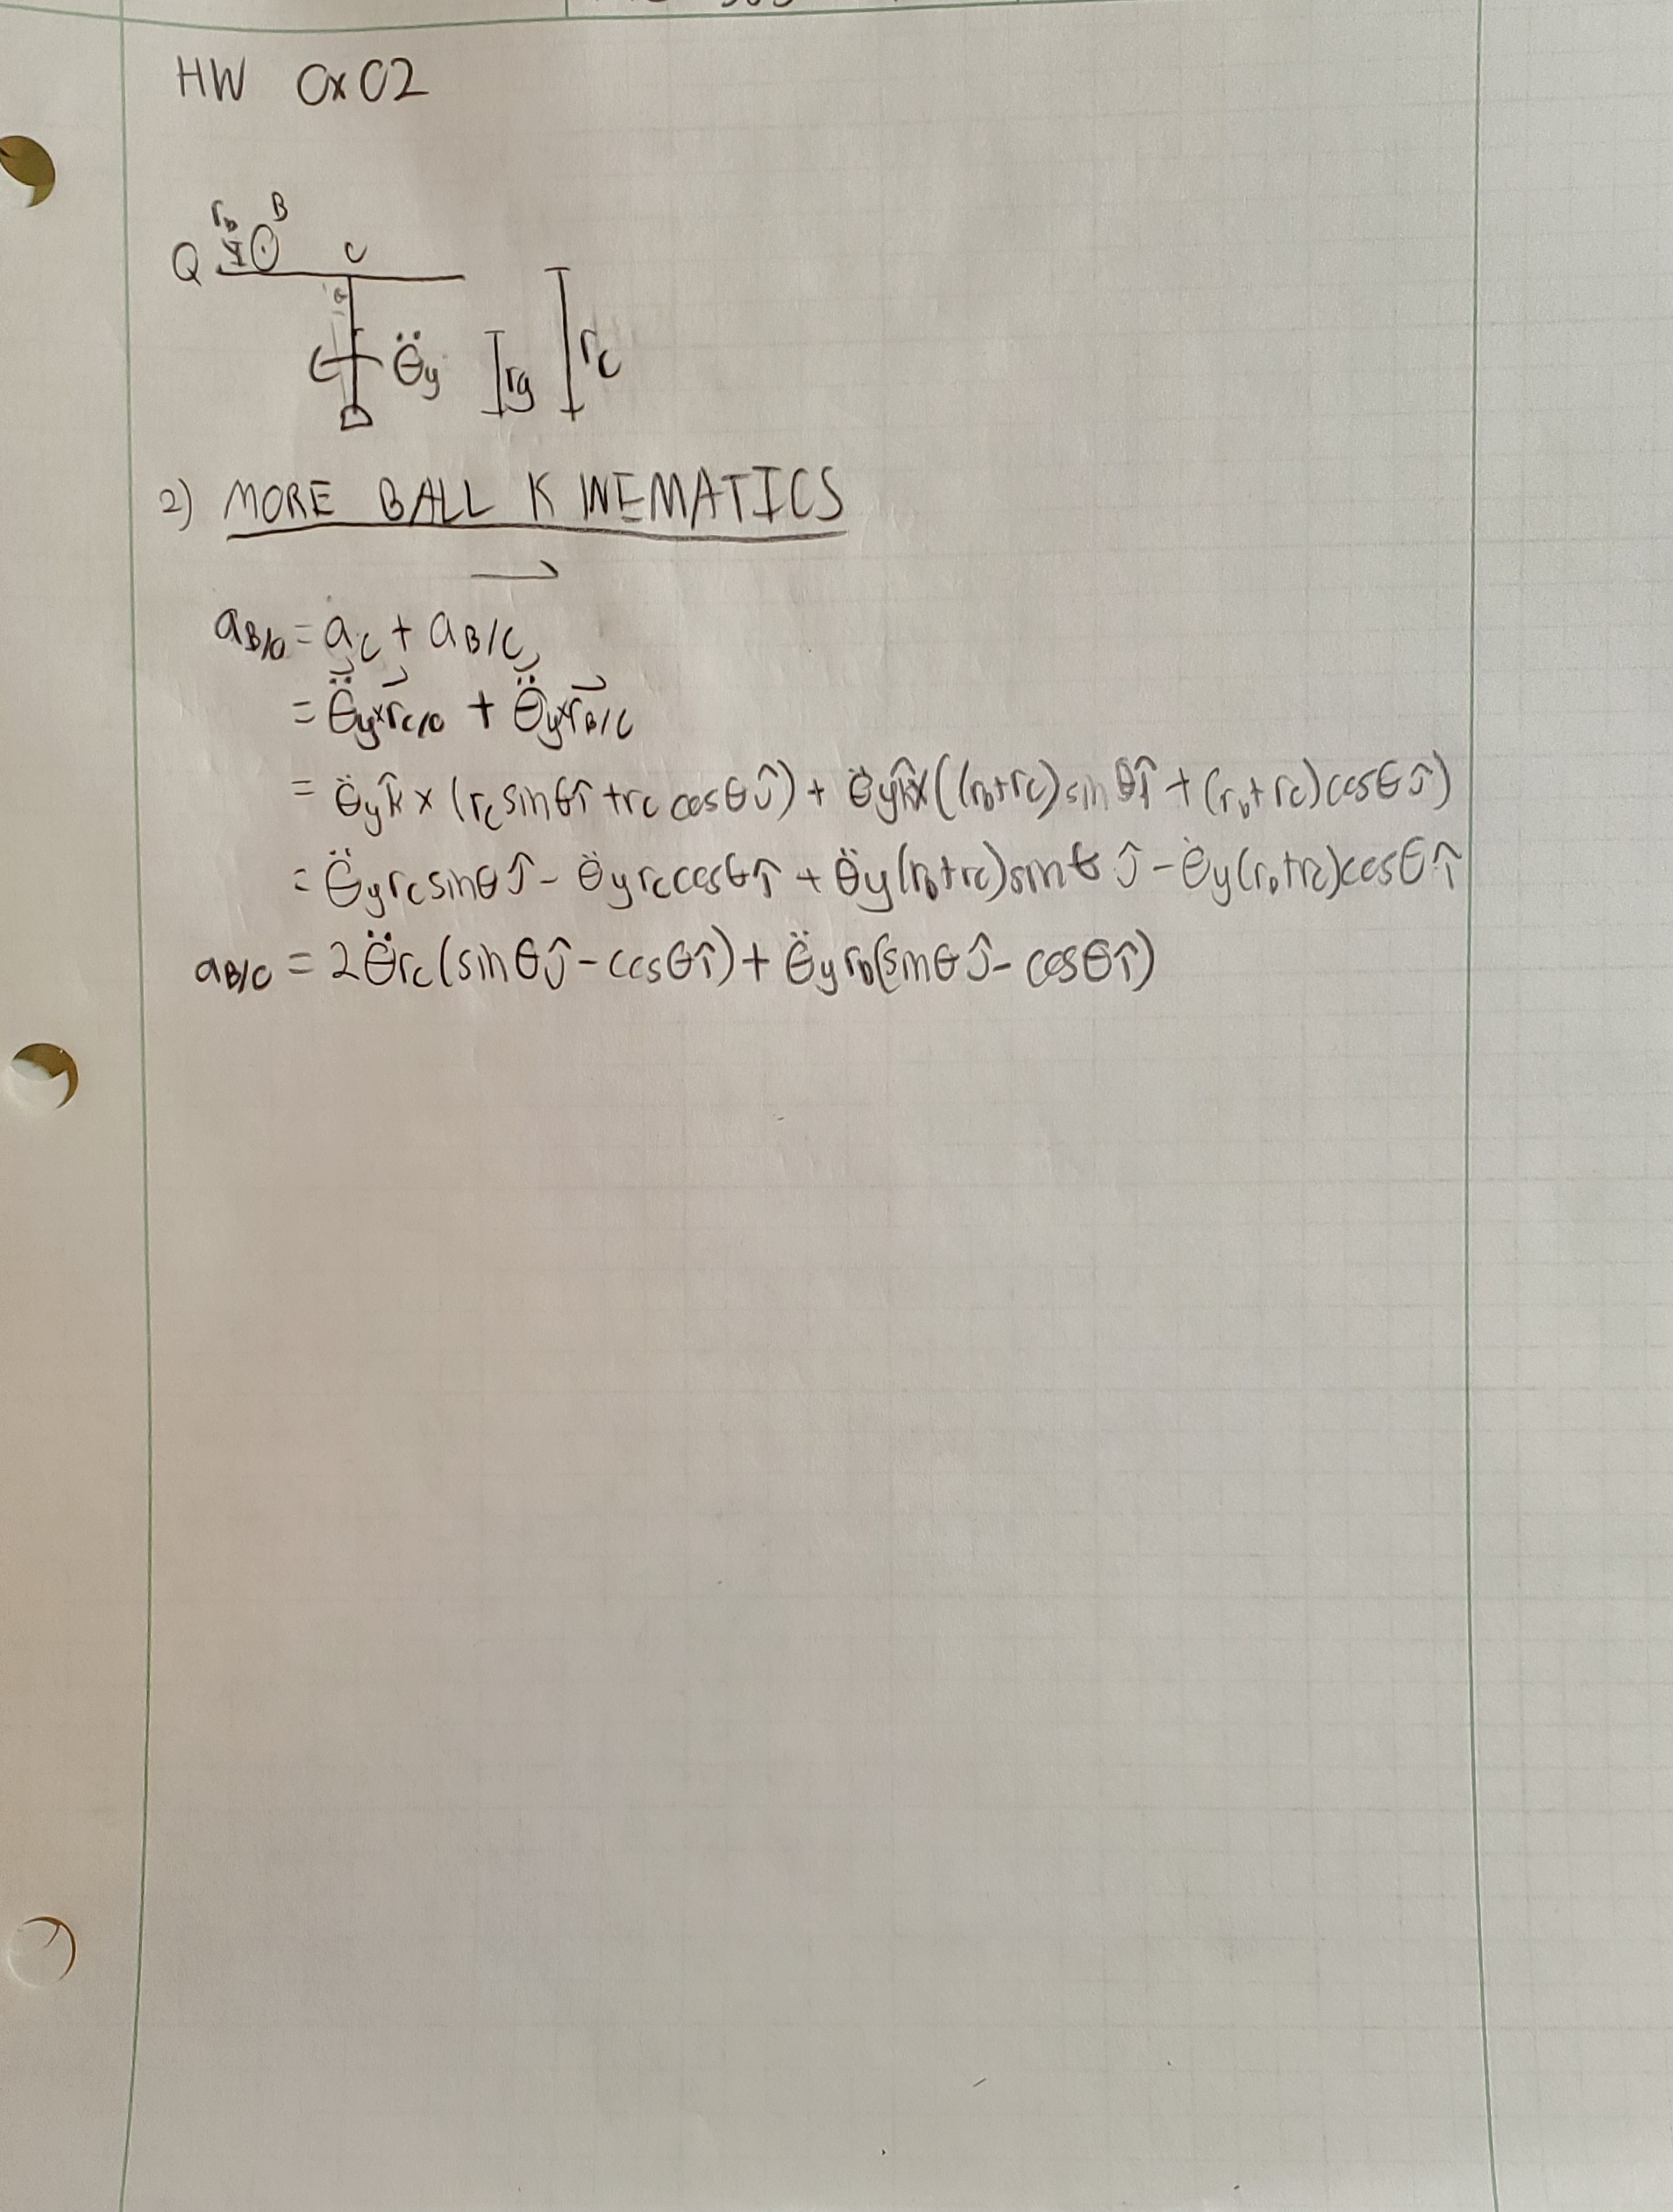 HW 0x02
r_b B
Q C
θ
θ̈y rg rc
2) MORE BALL KINEMATICS
a_B/O = a_C + a_B/C
= θ̈y × r_C/O + θ̈y × r_B/C
= θ̈y k̂ × (rc sinθ î + rc cosθ ĵ) + θ̈y k̂ × ((r_b + rc) sinθ î + (r_b + rc) cosθ ĵ)
= θ̈y rc sinθ ĵ - θ̈y rc cosθ î + θ̈y (r_b + rc) sinθ ĵ - θ̈y (r_b + rc) cosθ î
a_B/O = 2θ̈ rc (sinθ ĵ - cosθ î) + θ̈y r_b (sinθ ĵ - cosθ î)